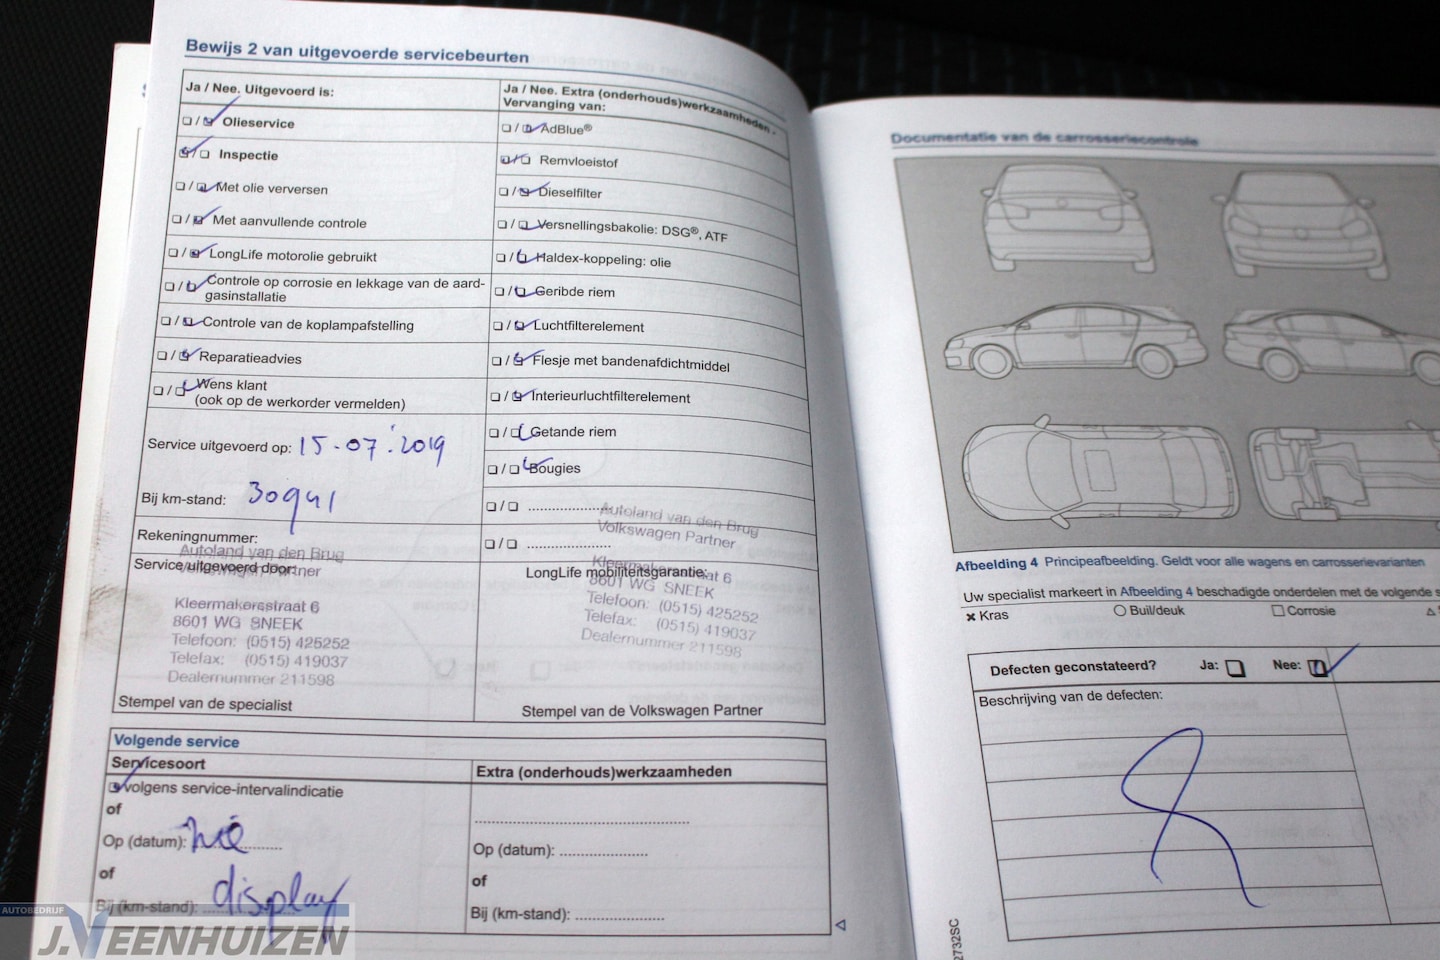 Bewijs 2 van uitgevoerde servicebeurten
Ja / Nee. Uitgevoerd is:
Olieservice
Inspectie
Met olie verversen
Met aanvullende controle
LongLife motorolie gebruikt
Controle op corrosie en lekkage van de aard-
gasinstallatie
Controle van de koplampafstelling
Reparatieadvies
Wens klant
(ook op de werkorder vermelden)
Service uitgevoerd op: 15-07-2019
Bij km-stand: 30941
Rekeningnummer:
Autoland van den Brug
Volkswagen Partner
Service uitgevoerd door:
Kleermakersstraat 6
8601 WG SNEEK
Telefoon: (0515) 425252
Telefax: (0515) 419037
Dealernummer 211598
Stempel van de specialist
Ja / Nee. Extra (onderhouds)werkzaamheden -
Vervanging van:
AdBlue®
Remvloeistof
Dieselfilter
Versnellingsbakolie: DSG®, ATF
Haldex-koppeling: olie
Geribde riem
Luchtfilterelement
Flesje met bandenafdichtmiddel
Interieurluchtfilterelement
Getande riem
Bougies
Autoland van den Brug
Volkswagen Partner
LongLife mobiliteitsgarantie:
Kleermakersstraat 6
8601 WG SNEEK
Telefoon: (0515) 425252
Telefax: (0515) 419037
Dealernummer 211598
Stempel van de Volkswagen Partner
Volgende service
Servicesoort
volgens service-intervalindicatie
of
Op (datum):
of
Bij (km-stand): display
Extra (onderhouds)werkzaamheden
Op (datum):
of
Bij (km-stand):
Documentatie van de carrosseriecontrole
Afbeelding 4 Principeafbeelding. Geldt voor alle wagens en carrosserievarianten
Uw specialist markeert in Afbeelding 4 beschadigde onderdelen met de volgende
Kras Buil/deuk Corrosie
Defecten geconstateerd? Ja: Nee:
Beschrijving van de defecten:
2732SC
AUTOBEDRIJF
J.VEENHUIZEN